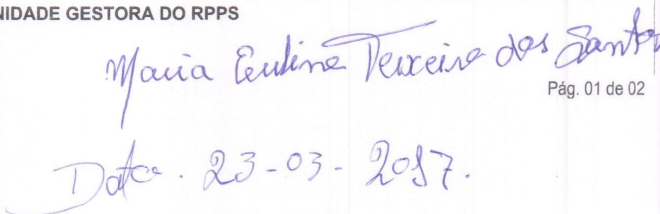 NIDADE GESTORA DO RPPS
Maria Eulina Teixeira dos Santos
Pág. 01 de 02
Data. 23-03-2017.